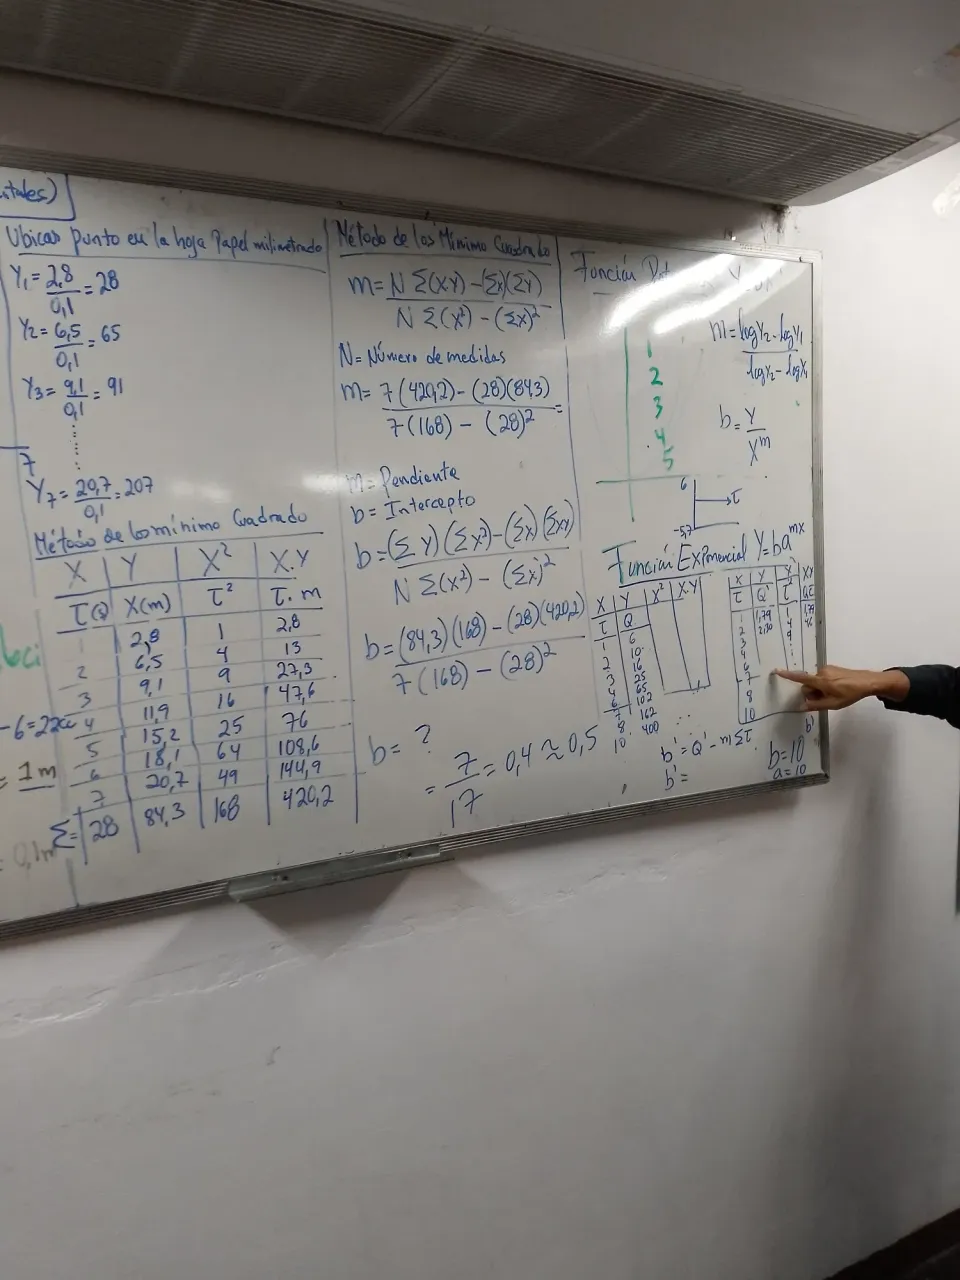 tales)
Ubicar punto en la hoja Papel milimetrado
Y₁ = 2,8 / 0,1 = 28
Y₂ = 6,5 / 0,1 = 65
Y₃ = 9,1 / 0,1 = 91
7
Y₇ = 20,7 / 0,1 = 207
Método de los mínimo Cuadrado
X | Y | X² | X.Y
X(m) | τ² | τ.m
1 | 2,8 | 1 | 2,8
2 | 6,5 | 4 | 13
3 | 9,1 | 9 | 27,3
4 | 11,9 | 16 | 47,6
5 | 15,2 | 25 | 76
6 | 18,1 | 64 | 108,6
7 | 20,7 | 49 | 144,9
Σ= 28 | 84,3 | 168 | 420,2
= 1m
0,1m
Método de los Mínimo Cuadrado
m = N Σ(X.Y) - (Σx)(ΣY) / N Σ(X²) - (ΣX)²
N = Número de medidas
m = 7(420,2) - (28)(84,3) / 7(168) - (28)² =
m = Pendiente
b = Intercepto
b = (ΣY)(ΣX²) - (Σx)(Σxy) / N Σ(X²) - (Σx)²
b = (84,3)(168) - (28)(420,2) / 7(168) - (28)²
b = ?
= 7 / 17 = 0,4 ≈ 0,5
Función
m = logY₂ - logY₁ / logX₂ - logX₁
1
2
3
4
5
b = Y / X^m
6
τ
-5,7
Función Exponencial Y = ba^mx
X | Y | X² | X.Y
τ | Q
1 | 6
2 | 10
3 | 16
4 | 25
6 | 65
7 | 102
8 | 162
10 | 400
X | Y | X² | XY
τ | Q' | τ²
1 | 1,79
2 | 2,30
3
4
6
7
8
10
b' = Q' - mΣτ
b' =
b = 10^b'
a = 10